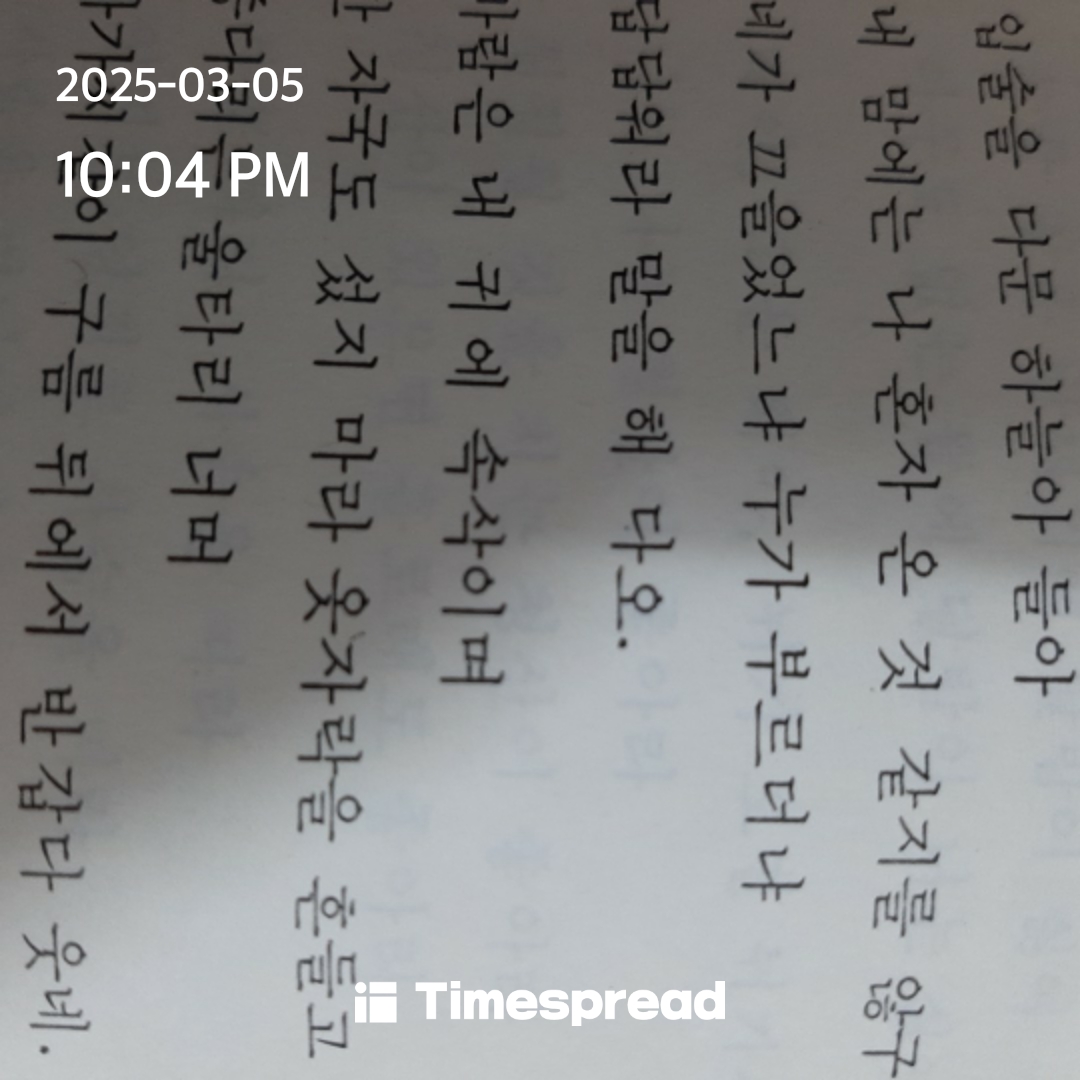 2025-03-05
10:04 PM
입술을 다문 하늘아 들아
내 맘에는 나 혼자 온 것 같지를 않구
네가 끄을었느냐 누가 부르더냐
답답워라 말을 해 다오.
바람은 내 귀에 속삭이며
자국도 섰지 마라 옷자락을 흔들고
울타리 너머
구름 뒤에서 반갑다 웃네.
Timespread